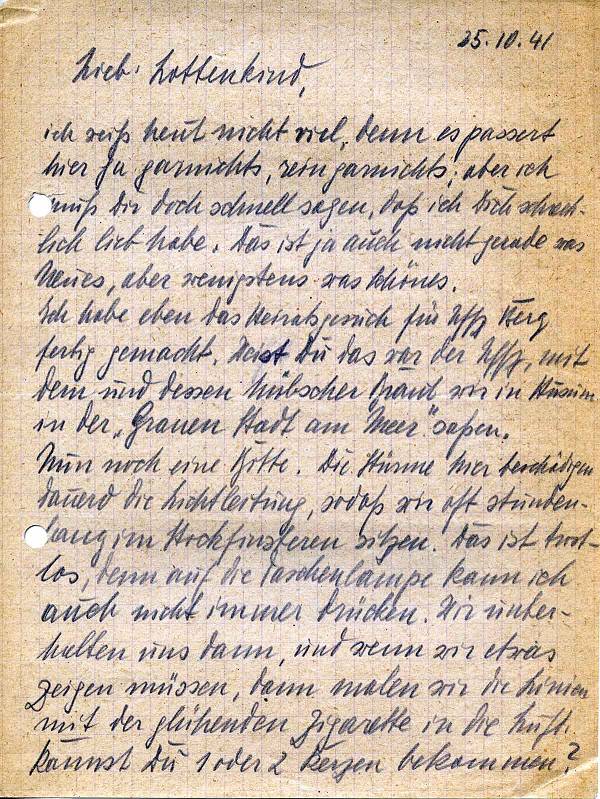 25.10.41
Lieb' Lottenkind,
ich weiß heut nicht viel, denn es passert
hier ja garnichts, rein garnichts, aber ich
muß Dir doch schnell sagen, daß ich Dich schreck-
lich lieb habe. Das ist ja auch nicht gerade was
Neues, aber wenigstens was Schönes.
Ich habe eben das Heiratsgesuch für Uffz Berg
fertig gemacht. Weist Du das war der Uffz, mit
dem und dessen hübscher Braut wir in Husum
in der „Grauen Stadt am Meer" saßen.
Nun noch eine Bitte. Die Stürme hier beschädigen
dauerd die Lichtleitung, sodaß wir oft stunden-
lang im Stockfinsteren sitzen. Das ist trost-
los, denn auf die Taschenlampe kann ich
auch nicht immer drücken. Wir unter-
halten uns dann, und wenn wir etwas
zeigen müssen, dann malen wir die Linien
mit der glühenden Zigarette in die Luft.
Kannst Du 1 oder 2 Kerzen bekommen?